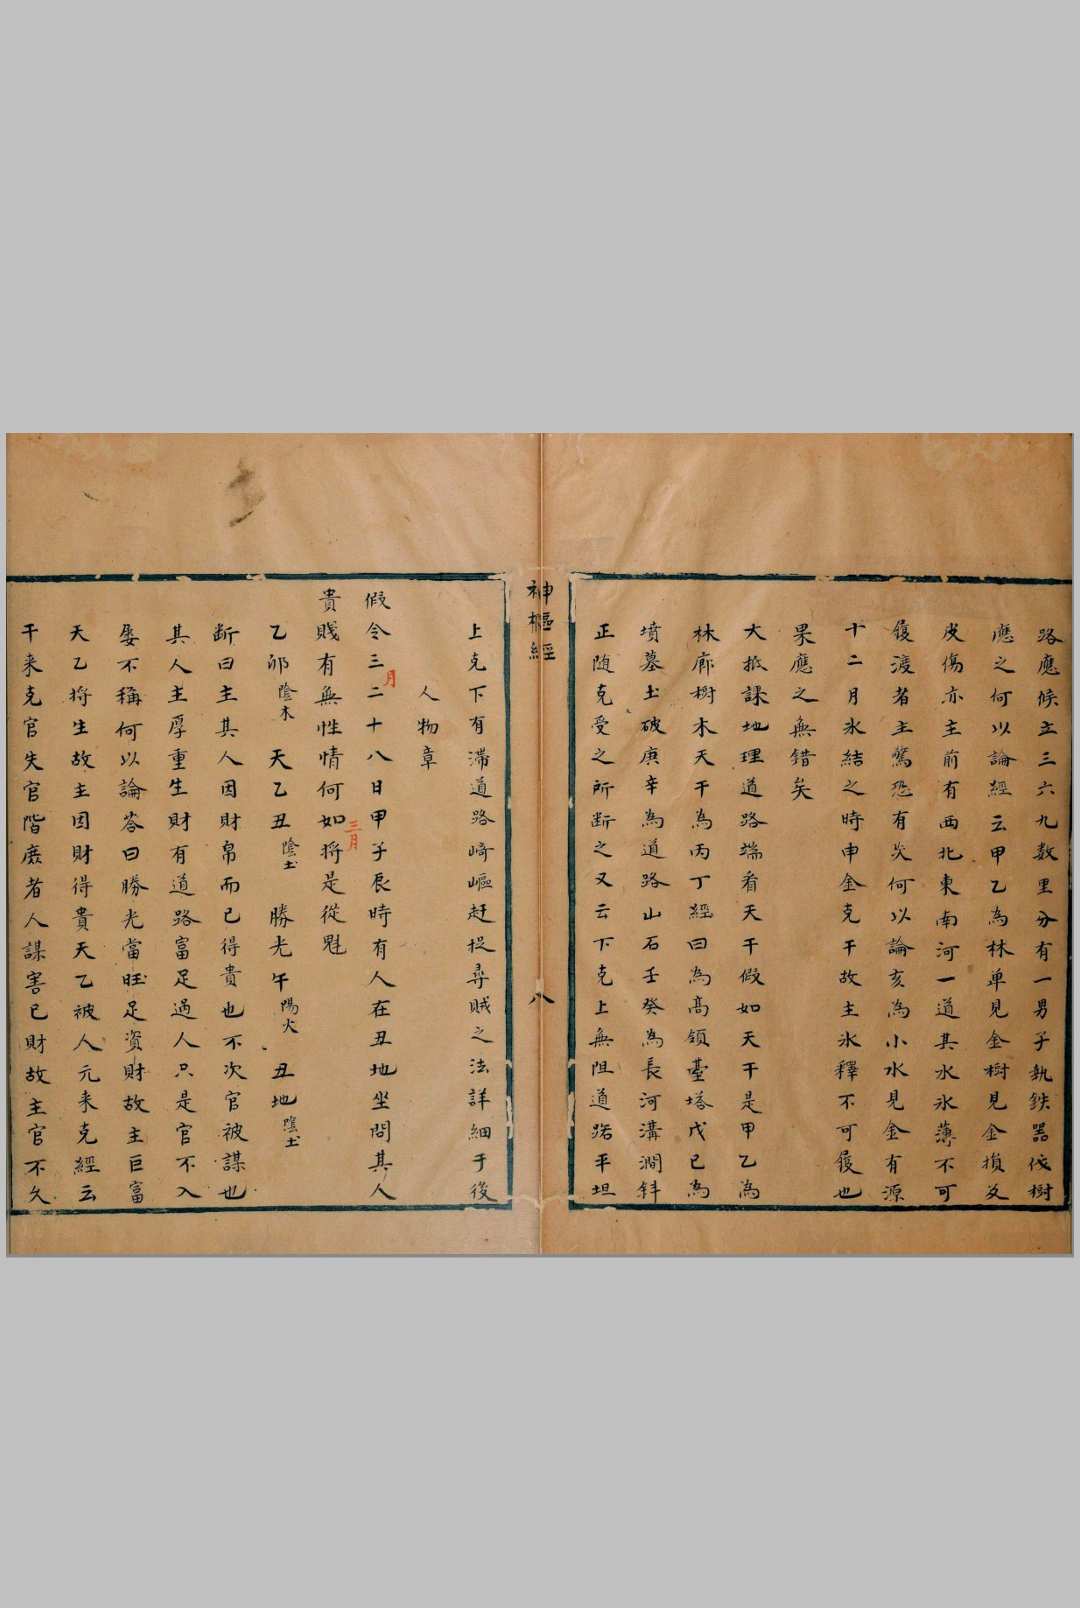 路應候立三六九数里分有一男子執鉄器依樹
應之何以論經云甲乙為林单見金樹見金損爻
皮傷亦主前有西北東南河一道其水氷薄不可
履渡者主驚恐有灾何以論亥為小水見金有源
十二月氷結之時申金克干故主氷釋不可履也
果應之無錯矣
大抵課地理道路端看天干假如天干是甲乙為
林廊樹木天干為丙丁經曰為高領臺塔戊已為
墳墓土破庚辛為道路山石壬癸為長河溝澗斜
正随克受之所断之又云下克上無阻道路平坦
神樞經
八
上克下有滞道路崎嶇赶捉尋賊之法詳細于後
人物章
假令三月二十八日甲子辰時有人在丑地坐問其人
貴賤有無性情何如三月将是從魁
乙邜陰木 天乙丑陰土 勝光午陽火 丑地陰土
断曰主其人因財帛而已得貴也不次官被謀也
其人主厚重生財有道路富足過人只是官不入
屡不稱何以論荅曰勝光當旺足資財故主巨富
天乙将生故主因財得貴天乙被人元来克經云
干来克官失官階廣者人謀害已財故主官不久